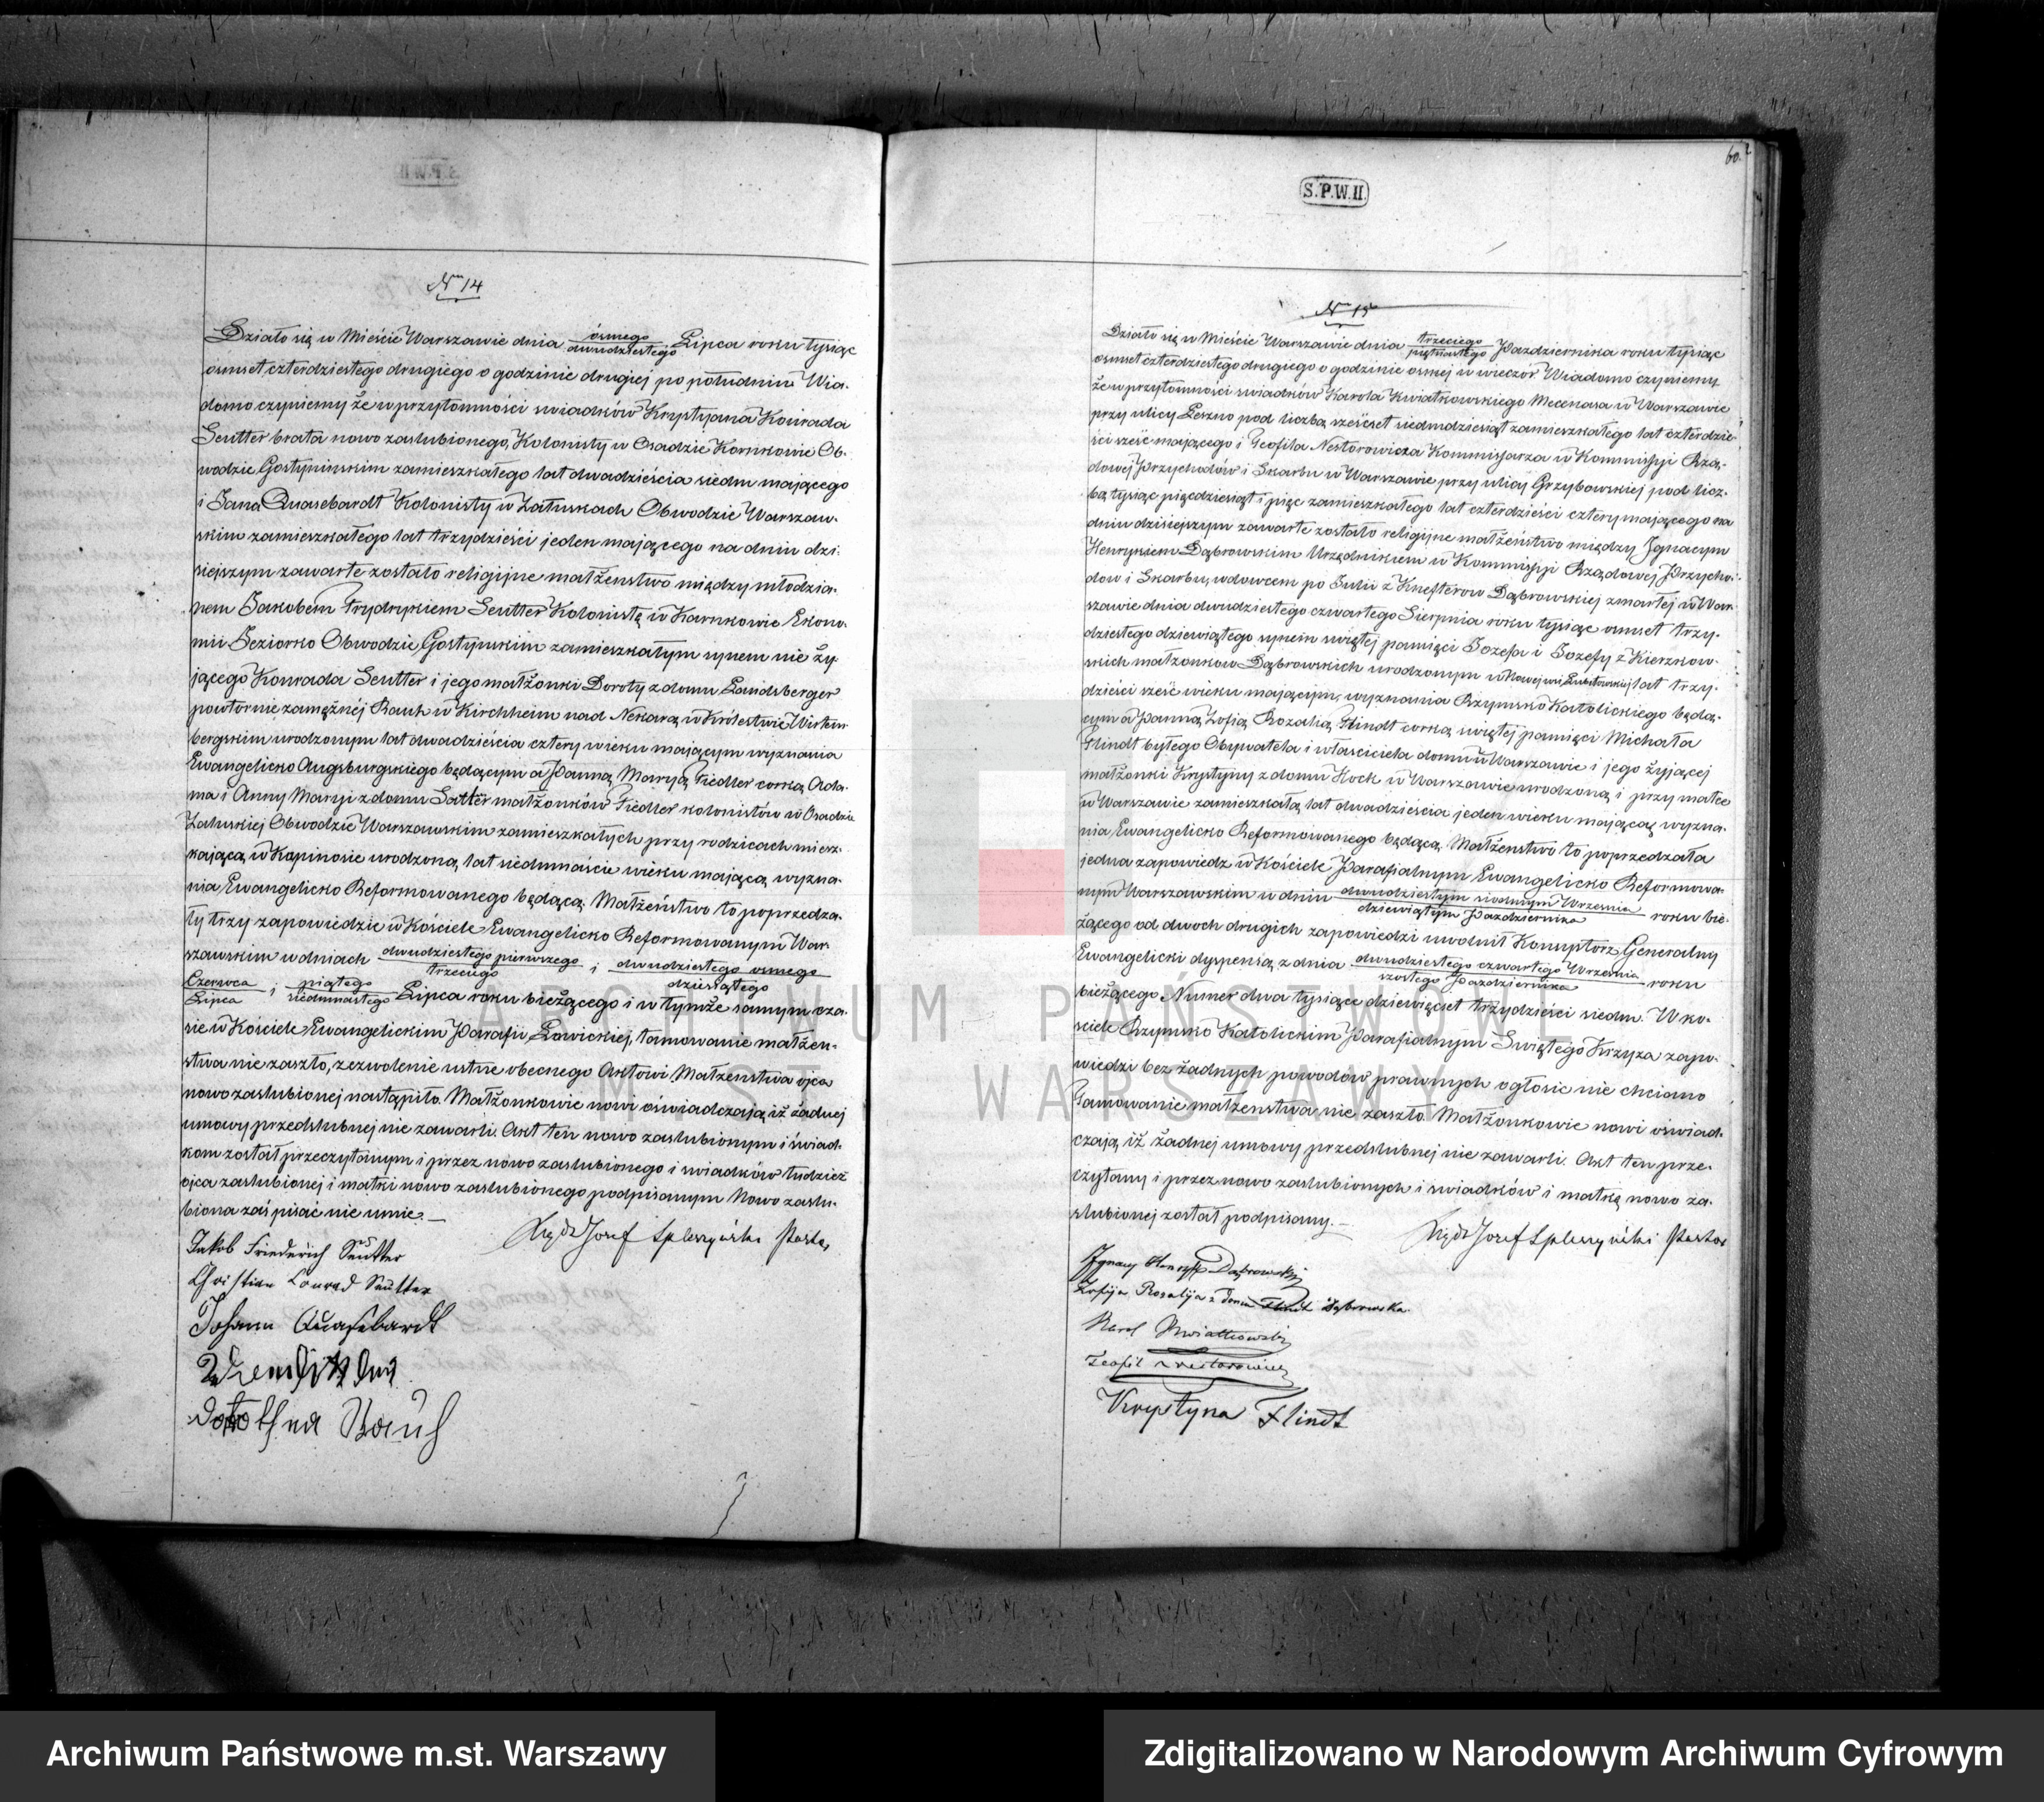 S.P.W.II.
60.
N 14
Działo się w Mieście Warszawie dnia ósmego / dwudziestego Lipca roku tysiąc
osmset czterdziestego drugiego o godzinie drugiej po południu Wia-
domo czyniemy że w przytomności swiadków Krystyana Konrada
Seutter brata nowo zaslubionego, Kolonisty w Osadzie Karnkowie Ob-
wodzie Gostyninskim zamieszkałego lat dwadzieścia siedm mającego
i Jana Quasebardt Kolonisty w Załuskach Obwodzie Warszaw-
skim zamieszkałego lat trzydzieści jeden mającego na dniu dzi-
siejszym zawarte zostało religijne małżeństwo między młodzia-
nem Jakobem Frydrykiem Seutter Kolonistą w Karnkowie Ekono-
mii Jeziorko Obwodzie Gostynskim zamieszkałym synem nie ży-
jącego Konrada Seutter i jego małżonki Doroty z domu Landsberger
powtornie zamężnéj Rauh w Kirchheim nad Nekarą w Królestwie Wirtem-
bergskim urodzonym lat dwadzieścia cztery wieku mającym wyznania
Ewangelicko Augsburgskiego będącym a Panną Maryą Fiedler corką Ada-
ma i Anny Maryi z domu Sattler małżonków Fiedler kolonistów w Osadzie
Załuskiej Obwodzie Warszawskim zamieszkałych przy rodzicach miesz-
kającą w Kapinosie urodzoną lat siedmnaście wieku mającą wyzna-
nia Ewangelicko Reformowanego będącą. Małżeństwo to poprzedza-
ły trzy zapowiedzie w Kościele Ewangelicko Reformowanym War-
szawskim w dniach dwudziestego pierwszego / trzeciego i dwudziestego osmego / dziesiątego
Czerwca / Lipca i piątego / siedmnastego Lipca roku bieżącego i w tymże samym cza-
sie w Kościele Ewangelickim Parafii Łowickiej, tamowanie małżeń-
stwa nie zaszło, zezwolenie ustne obecnego Aktowi Małżenstwa ojca
nowozaslubionej nastąpiło. Małżonkowie nowi oświadczają iż żadnej
umowy przedslubnej nie zawarli. Akt ten nowo zaslubionym i świad-
kom został przeczytanym i przez nowo zaslubionego i swiadków tudzież
ojca zaslubionej i matki nowo zaslubionego podpisanym Nowo zaslu-
biona zaś pisać nie umie.
Xiądz Józef Spleszyński Pastor
Jakob Friederich Seutter
Christian Conrad Seutter
Johann Quasebardt
Dorothea Rauh
N 15
Działo się w Mieście Warszawie dnia trzeciego / piętnastego Pazdziernika roku tysiąc
osmset czterdziestego drugiego o godzinie osmej w wieczór Wiadomo czyniemy
że w przytomności swiadków Karola Kwiatkowskiego Mecenasa w Warszawie
przy ulicy Leszno pod liczbą sześćset siedmdziesiąt zamieszkałego lat czterdzie-
ści sześć mającego i Teofila Nestorowicza Kommissarza w Kommissyi Rzą-
dowej Przychodów i Skarbu w Warszawie przy ulicy Grzybowskiej pod licz-
bą tysiąc pięćdziesiąt i pięć zamieszkałego lat czterdzieści cztery mającego na
dniu dzisiejszym zawarte zostało religijne małżeństwo między Ignacym
Henrykiem Dąbrowskim Urzędnikiem w Kommissyi Rządowej Przycho-
dow i Skarbu, wdowcem po Julii z Dąbrowskiej zmarłej w War-
szawie dnia dwudziestego czwartego Sierpnia roku tysiąc osmset trzy-
dziestego dziewiątego synem swiętej pamięci Jozefa i Jozefy z Kierzkow-
skich małżonkow Dąbrowskich urodzonym w Nowej wsi lat trzy-
dzieści sześć wieku mającym, wyznania Rzymsko Katolickiego będą-
cym a Panną Zofią Rozalią Flindt corką swiętej pamięci Michała
Flindt byłego Obywatela i własciciela domu w Warszawie i jego żyjącej
małżonki Krystyny z domu Hock w Warszawie urodzoną i przy matce
w Warszawie zamieszkałą lat dwadzieścia jeden wieku mającą wyzna-
nia Ewangelicko Reformowanego będącą Małżenstwo to poprzedzała
jedna zapowiedz w Kościele Parafialnym Ewangelicko Reformowa-
nym Warszawskim w dniu dwudziestym siodmym Września / dziewiątym Pazdziernika roku bie-
żącego od dwoch drugich zapowiedzi uwolnił Konsystorz Generalny
Ewangelicki dyspensą z dnia dwudziestego czwartego Września / szostego Pazdziernika roku
bieżącego Numer dwa tysiące dziewięćset trzydzieści siedm. W ko-
sciele Rzymsko Katolickim Parafialnym Swiętego Krzyża zapo-
wiedzi bez żadnych powodów prawnych ogłosic nie chciano
Tamowanie małżenstwa nie zaszło. Małżonkowie nowi oswiad-
czają iż żadnej umowy przedslubnej nie zawarli. Akt ten prze-
czytany i przez nowo zaslubionych i swiadków i matkę nowo za-
slubionej został podpisany.
Xiądz Józef Spleszyński Pastor
Ignacy Henryk Dąbrowski
Zofija Rozalija z Domu Flindt Dąbrowska
Karol Kwiatkowski
Teofil Nestorowicz
Krystyna Flindt
ARCHIWUM PAŃSTWOWE
M.ST. WARSZAWY
Archiwum Państwowe m.st. Warszawy
Zdigitalizowano w Narodowym Archiwum Cyfrowym